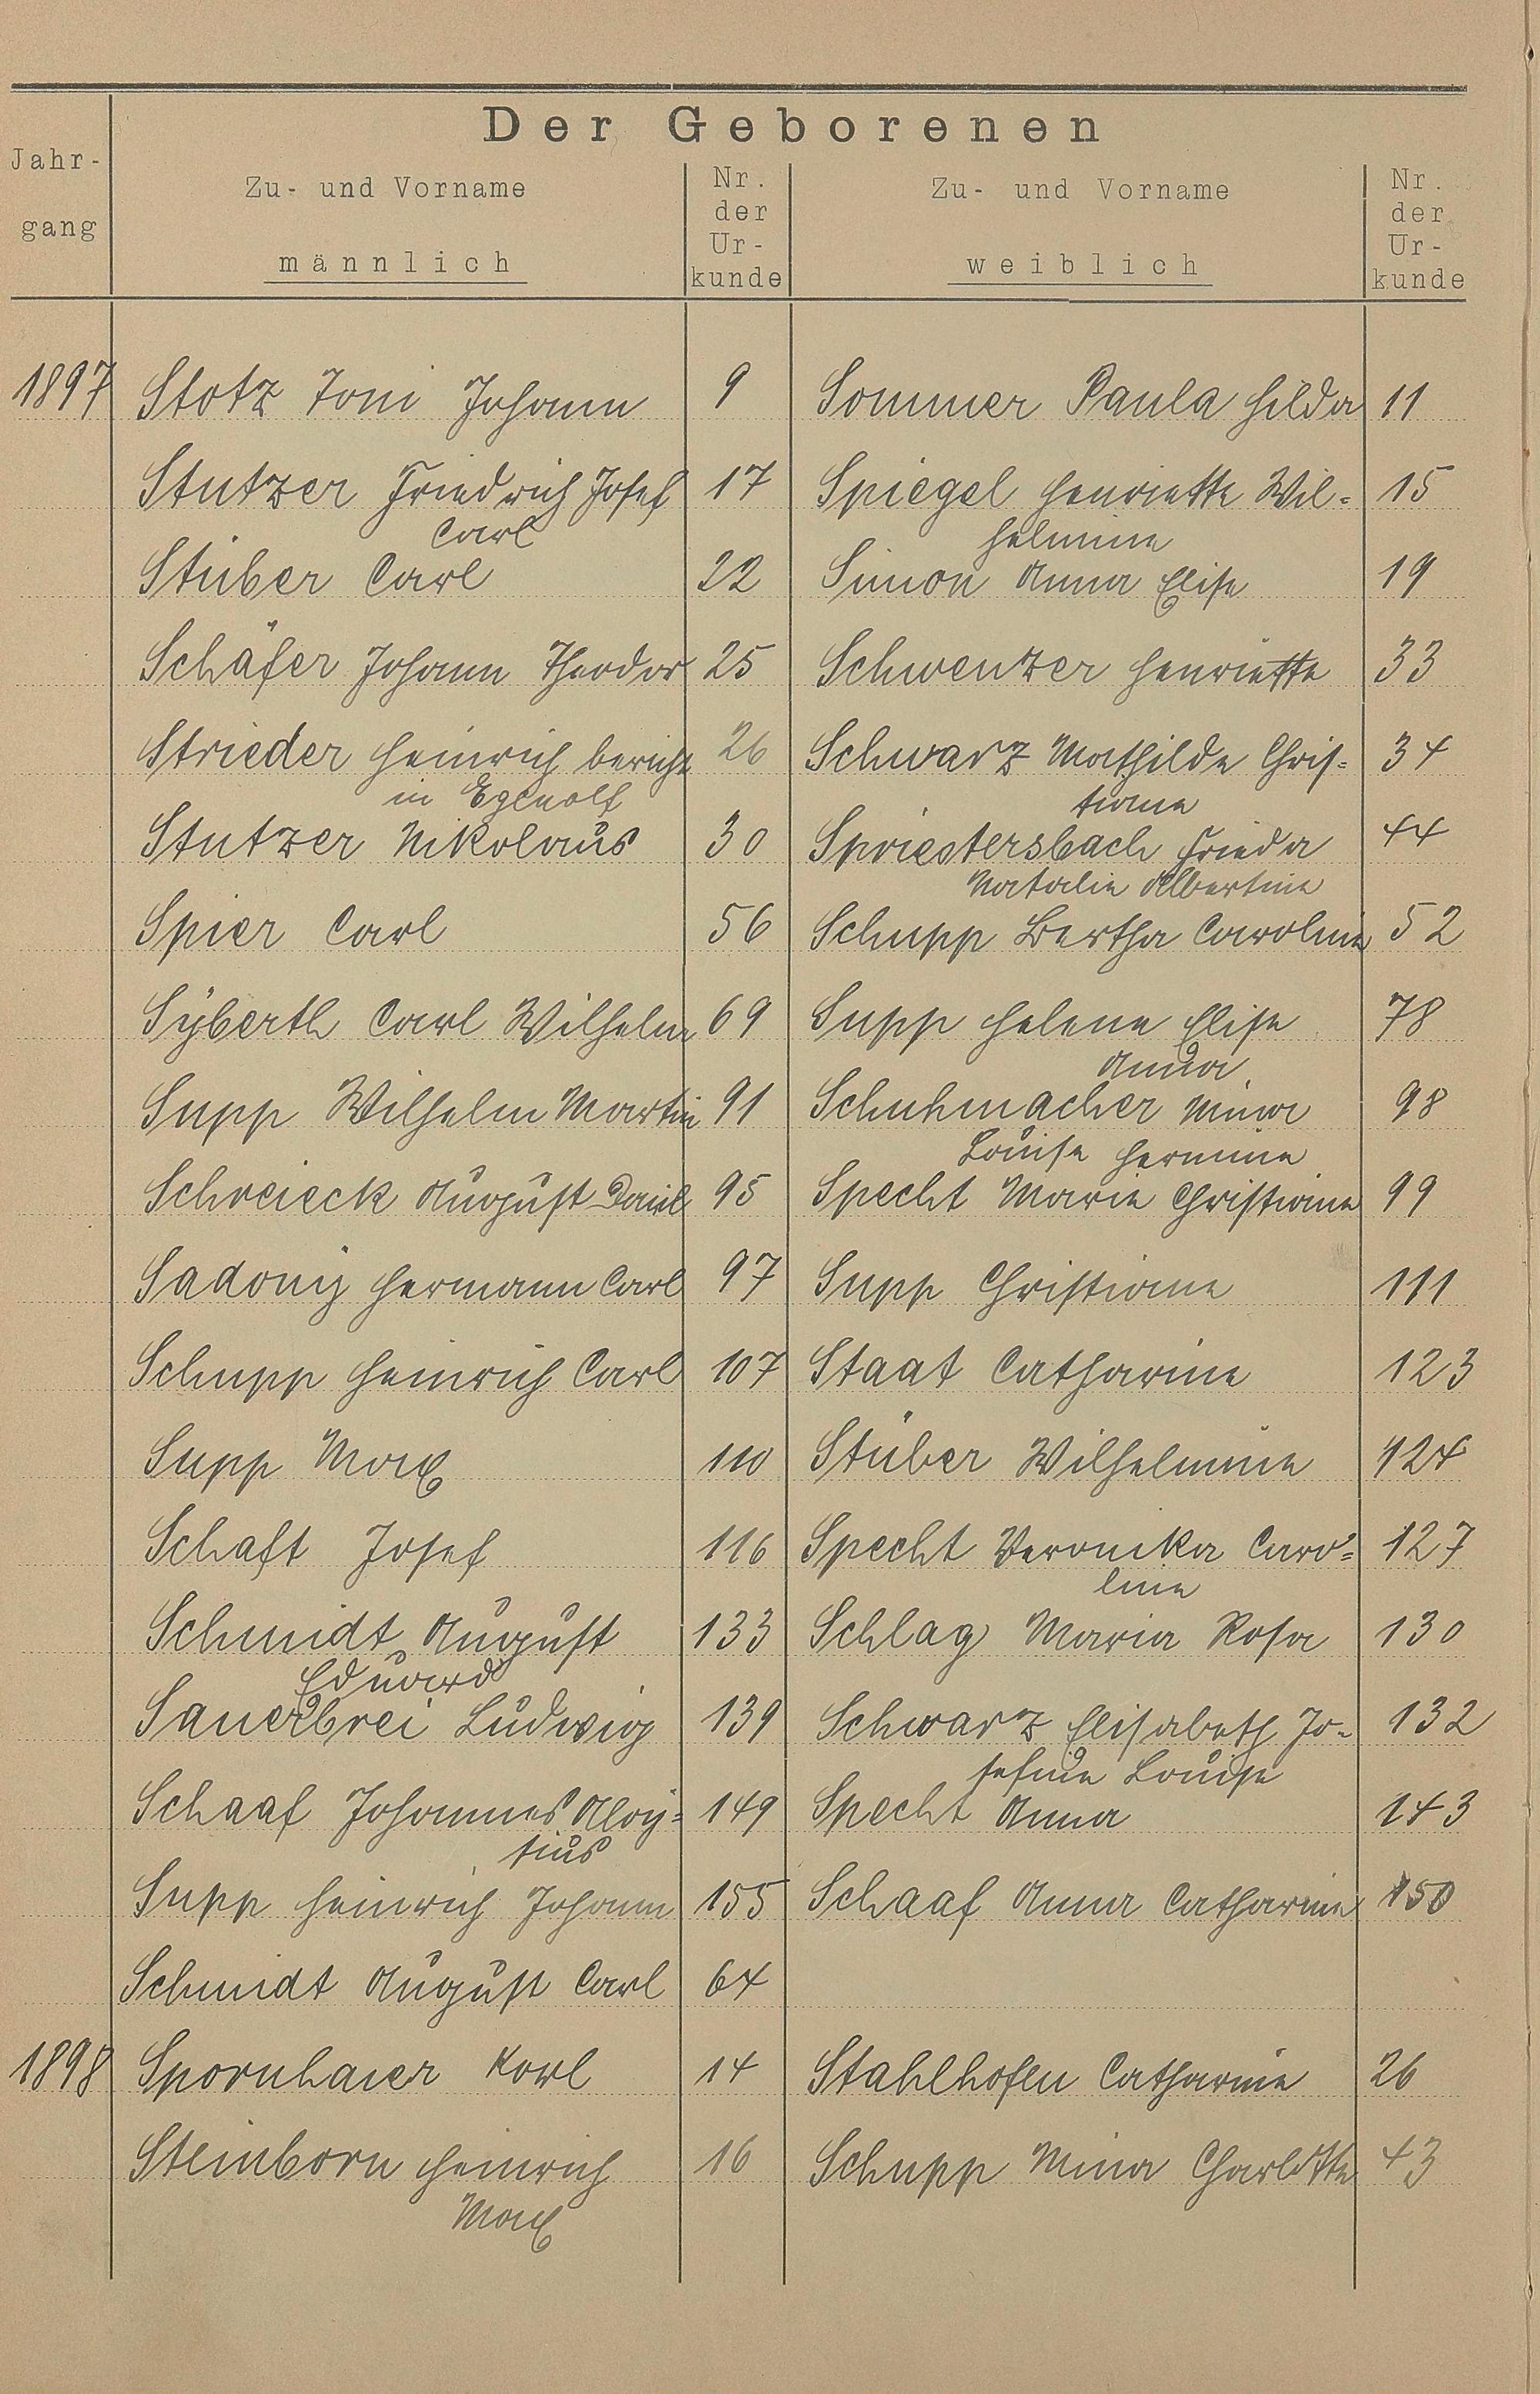 Der Geborenen
Jahr-
gang
Zu- und Vorname
männlich
Nr.
der
Ur-
kunde
Zu- und Vorname
weiblich
Nr.
der
Ur-
kunde
1897 Stotz Toni Johann 9 Sommer Paula Hilda 11
Stutzer Friedrich Josef 17 Spiegel Henriette Wil= 15
Carl helmine
Stüber Carl 22 Simon Anna Elise 19
Schäfer Johann Theodor 25 Schwenzer Henriette 33
Strieder Heinrich bericht 26 Schwarz Mathilde Chris= 34
in Egenolf tiane
Stutzer Nikolaus 30 Spriestersbach Frieda 44
Natalie Albertine
Spier Carl 56 Schupp Bertha Caroline 52
Syberth Carl Wilhelm 69 Supp Helene Elise 78
Anna
Supp Wilhelm Martin 91 Schuhmacher Mina 98
Louise Hermine
Schreieck August 95 Specht Marie Christiane 99
Sadony Hermann Carl 97 Supp Christiane 111
Schupp Heinrich Carl 107 Staat Catharine 123
Supp Max 110 Stüber Wilhelmine 124
Schaft Josef 116 Specht Veronika Caro= 127
line
Schmidt August 133 Schlag Maria Rosa 130
Eduard
Sauerbrei Ludwig 139 Schwarz Elisabeth Jo= 132
sefine Louise
Schaaf Johannes Aloy= 149 Specht Anna 143
sius
Supp Heinrich Johann 155 Schaaf Anna Catharine 150
Schmidt August Carl 64
1898 Spornhaier Karl 14 Stahlhofen Catharine 26
Steinborn Heinrich 16 Schupp Mina Charlotte 43
Max